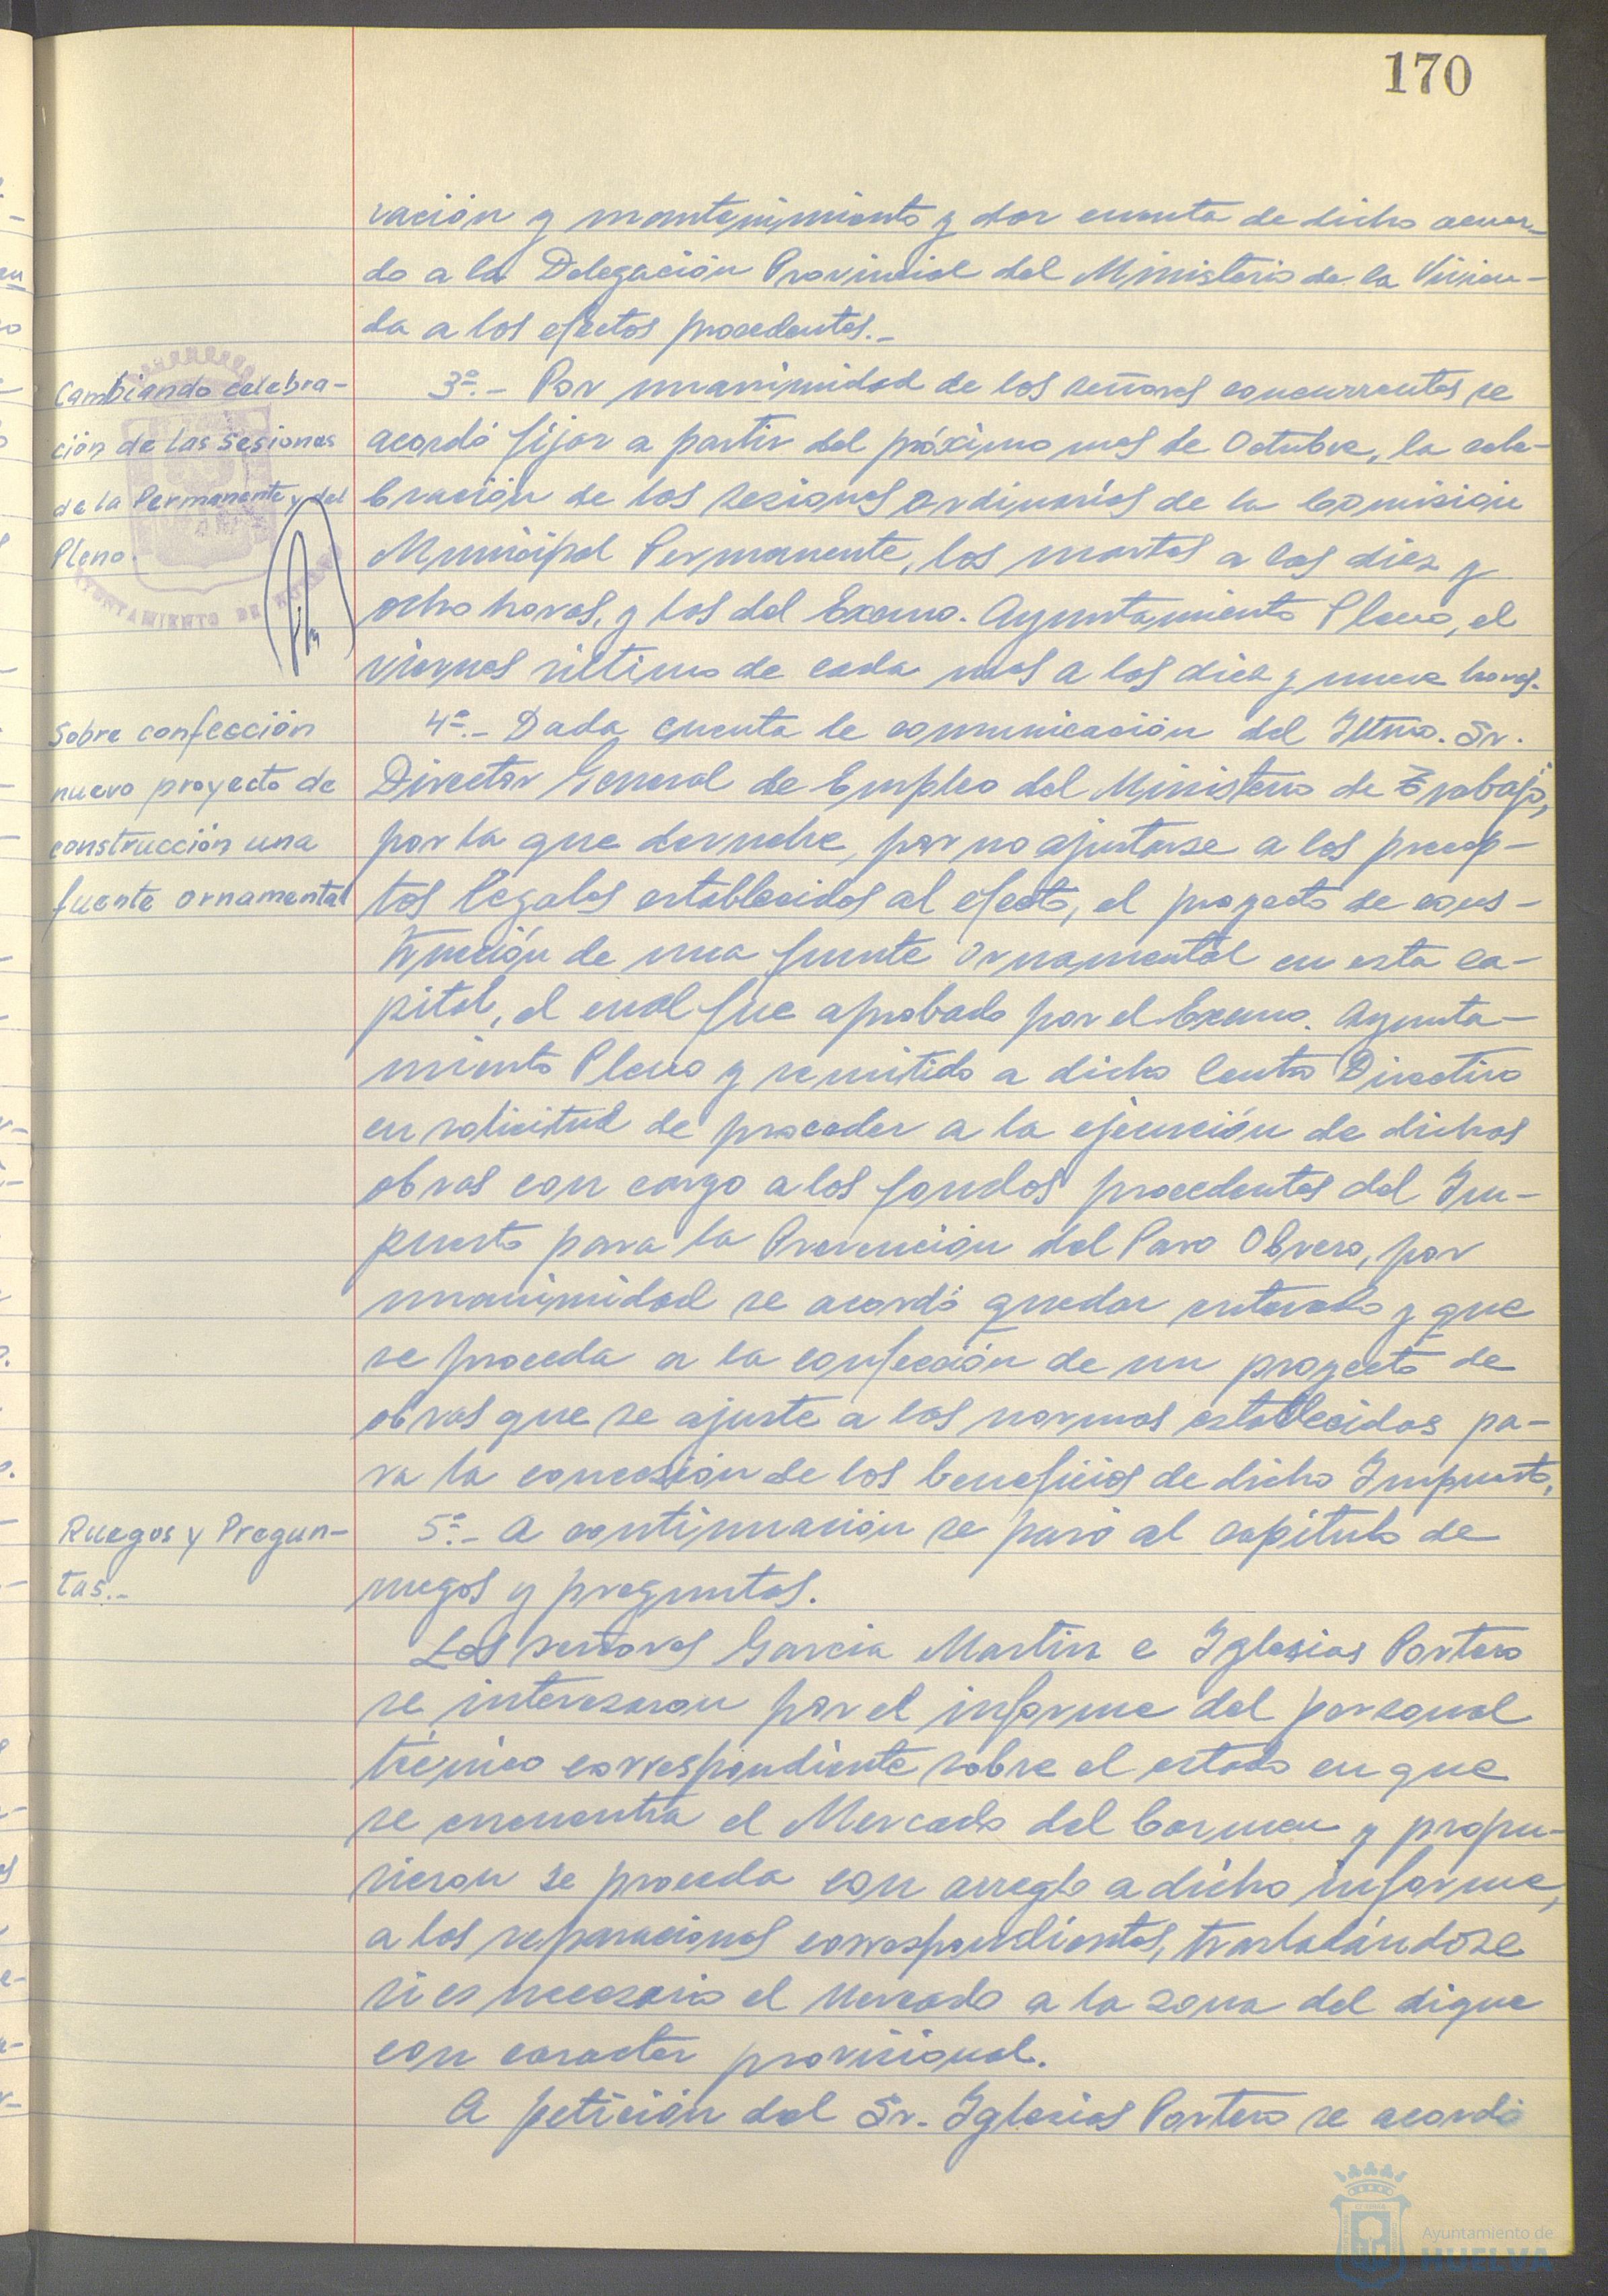 170
vación y mantenimiento y dar cuenta de dicho acuer-
do a la Delegación Provincial del Ministerio de la Vivien-
da a los efectos procedentes.-
Cambiando celebra-
ción de las sesiones
de la Permanente y del
Pleno.
3º.- Por unanimidad de los señores concurrentes se
acordó fijar a partir del próximo mes de Octubre, la cele-
bración de las sesiones ordinarias de la Comisión
Municipal Permanente, los martes a las diez y
ocho horas, y las del Excmo. Ayuntamiento Pleno, el
viernes último de cada mes a las diez y nueve horas.
AYUNTAMIENTO DE HUELVA
Sobre confección
nuevo proyecto de
construcción una
fuente ornamental
4º.- Dada cuenta de comunicación del Iltmo. Sr.
Director General de Empleo del Ministerio de Trabajo,
por la que devuelve, por no ajustarse a los precep-
tos legales establecidos al efecto, el proyecto de cons-
trucción de una fuente ornamental en esta ca-
pital, el cual fue aprobado por el Excmo. Ayunta-
miento Pleno y remitido a dicho Centro Directivo
en solicitud de proceder a la ejecución de dichas
obras con cargo a los fondos procedentes del Im-
puesto para la Prevención del Paro Obrero, por
unanimidad se acordó quedar enterado y que
se proceda a la confección de un proyecto de
obras que se ajuste a las normas establecidas pa-
ra la concesión de los beneficios de dicho Impuesto.
Ruegos y Pregun-
tas.-
5º.- A continuación se pasó al capítulo de
ruegos y preguntas.
Los señores Garcia Martin e Iglesias Portero
se interesaron por el informe del personal
técnico correspondiente sobre el estado en que
se encuentra el Mercado del Carmen y propu-
sieron se proceda con arreglo a dicho informe,
a las reparaciones correspondientes, trasladándose
si es necesario el Mercado a la zona del dique
con caracter provisional.
A petición del Sr. Iglesias Portero se acordó
Ayuntamiento de
HUELVA